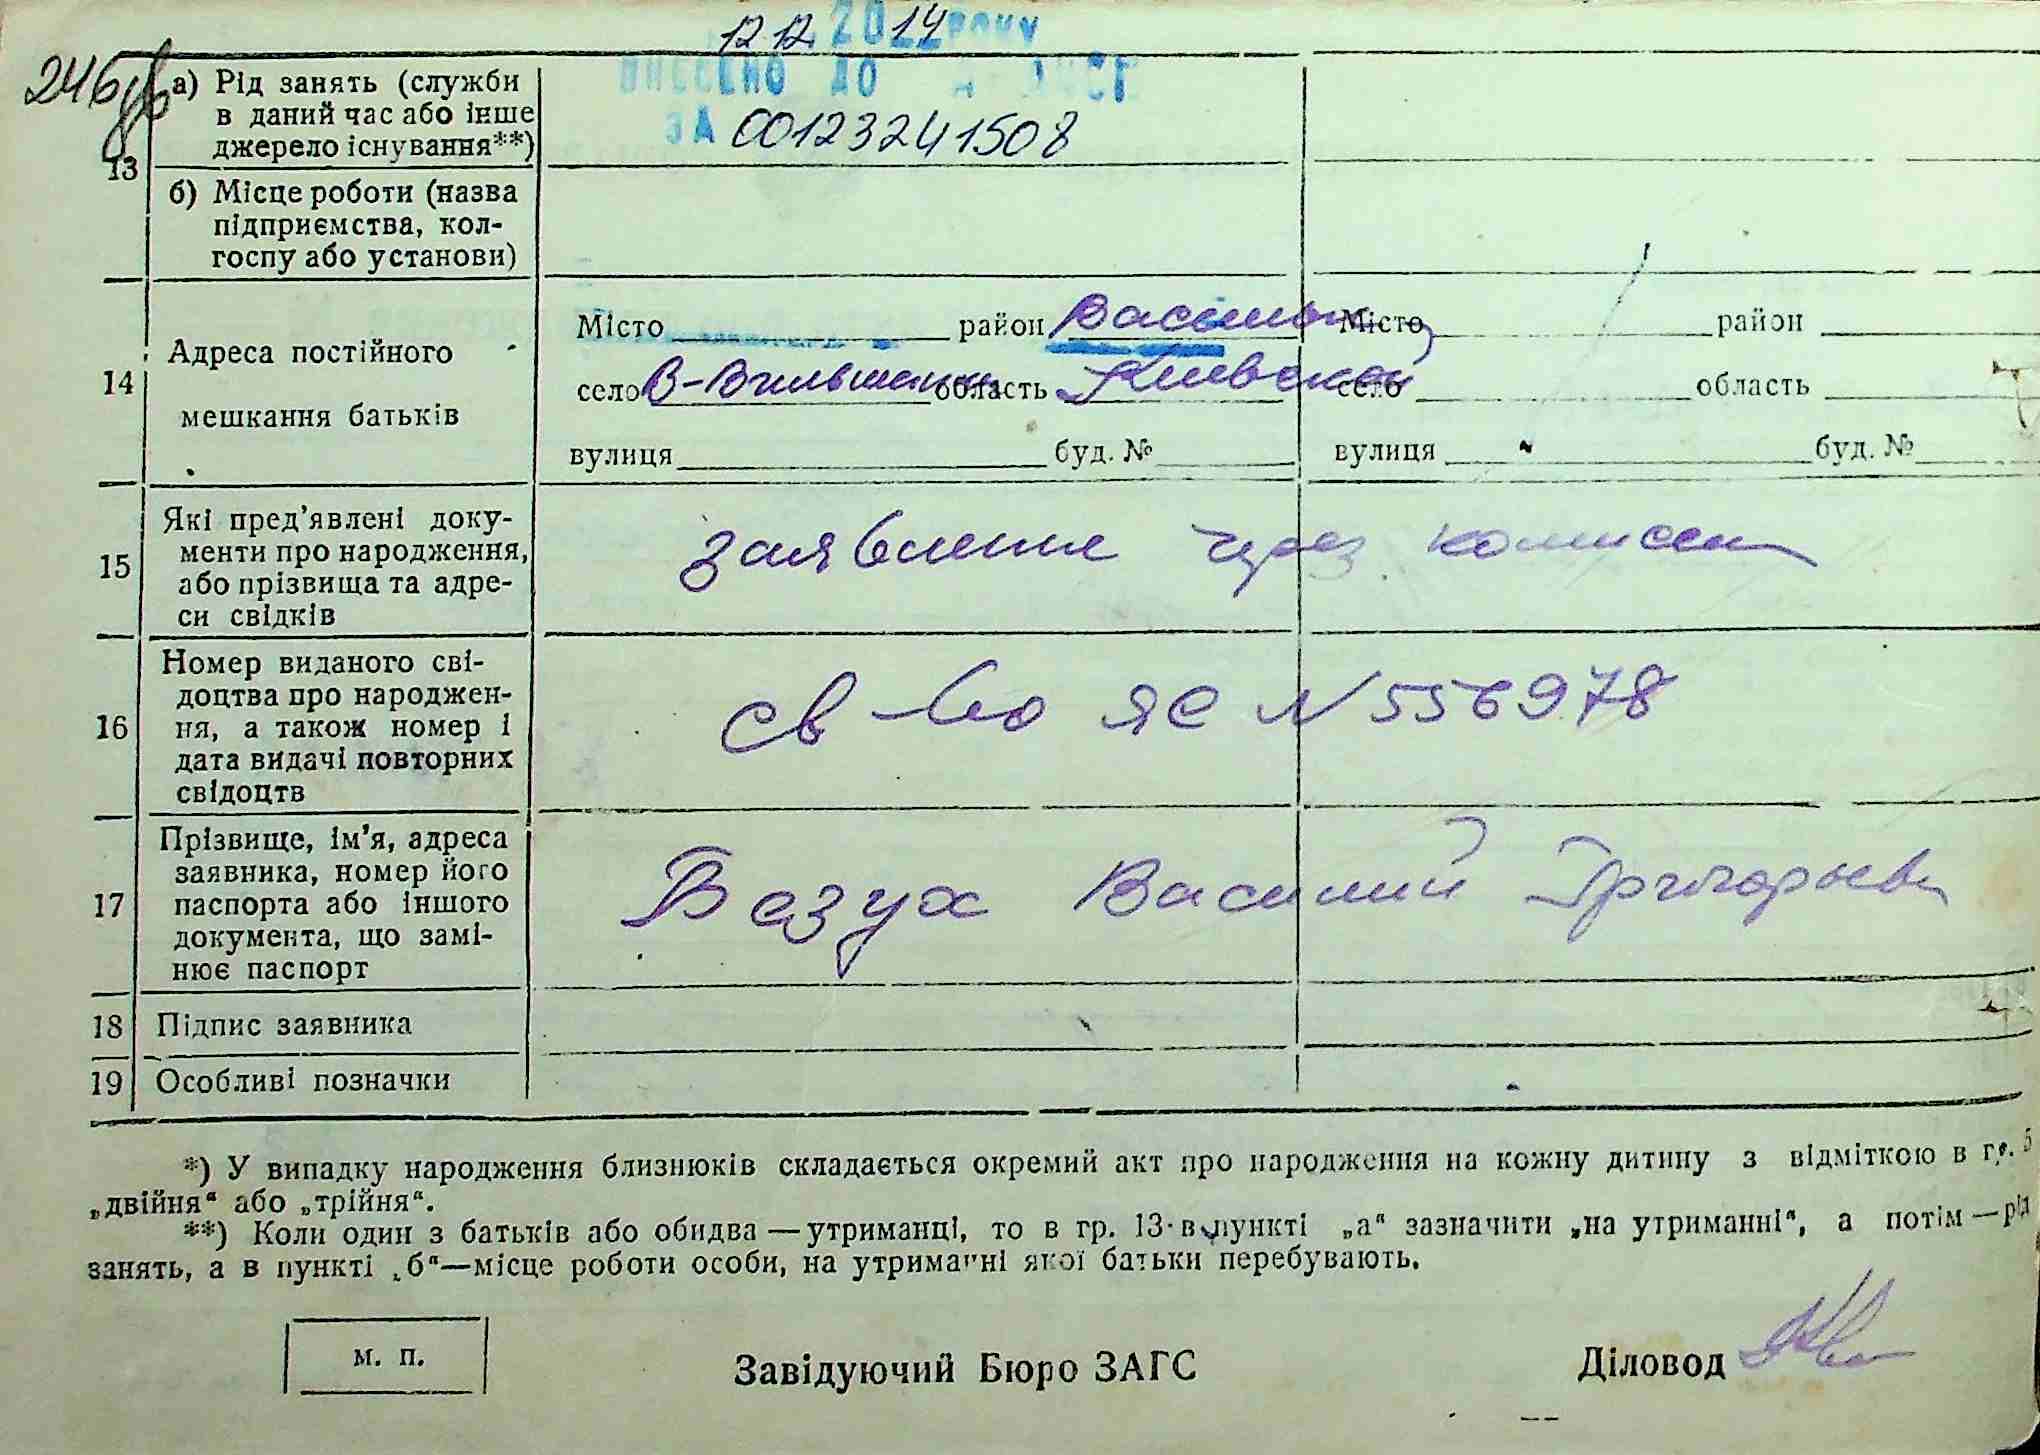 12 12. 2014 року
внесено до д РАСГ
за 00123241508
246 зв
13
а) Рід занять (служби
в даний час або інше
джерело існування**)
б) Місце роботи (назва
підприємства, кол-
госпу або установи)
14
Адреса постійного
мешкання батьків
Місто район Васильк Місто район
село В-Вильшанки область Киевской село область
вулиця буд. № вулиця буд. №
15
Які пред’явлені доку-
менти про народження,
або прізвища та адре-
си свідків
заявление через комиссию
16
Номер виданого сві-
доцтва про народжен-
ня, а також номер і
дата видачі повторних
свідоцтв
св-во ЯС N 556978
17
Прізвище, ім’я, адреса
заявника, номер його
паспорта або іншого
документа, що замі-
нює паспорт
Безух Василий Григорьев
18 Підпис заявника
19 Особливі позначки
*) У випадку народження близнюків складається окремий акт про народження на кожну дитину з відміткою в гр. 5
„двійня“ або „трійня“.
**) Коли один з батьків або обидва—утриманці, то в гр. 13 в пункті „а“ зазначити „на утриманні“, а потім—рід
занять, а в пункті „б“—місце роботи особи, на утриманні якої батьки перебувають.
м. п.
Завідуючий Бюро ЗАГС
Діловод